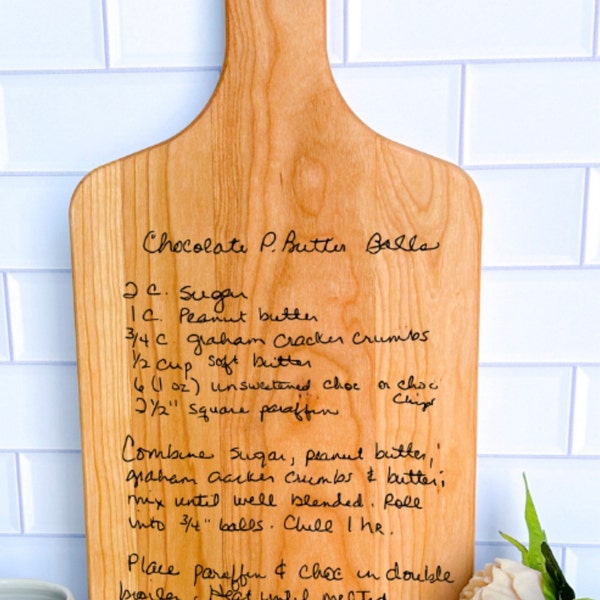 Chocolate P. Butter Balls
2 C. sugar
1 C. Peanut butter
3/4 C graham cracker crumbs
1/2 cup soft butter
6 (1 oz) unsweetened choc or choc
Chips
2 1/2" square paraffin
Combine sugar, peanut butter,
graham cracker crumbs & butter;
mix until well blended. Roll
into 3/4" balls. Chill 1 hr.
Place paraffin & choc in double
boiler. Heat until melted